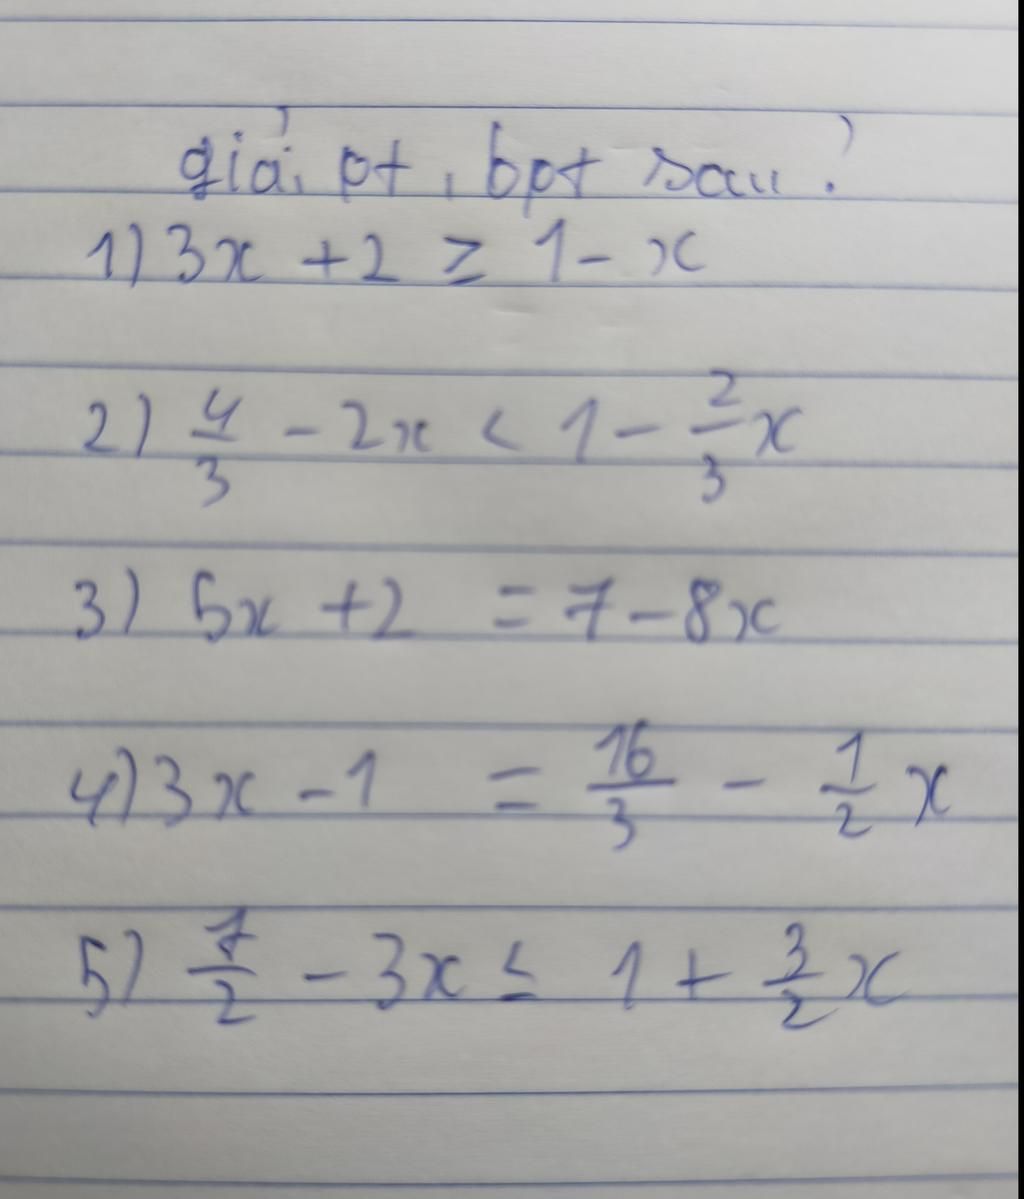 giải pt, bpt sau?
1) 3x + 2 ≥ 1 - x
2) 4/3 - 2x < 1 - 2/3 x
3) 5x + 2 = 7 - 8x
4) 3x - 1 = 16/3 - 1/2 x
5) 7/2 - 3x ≤ 1 + 3/2 x